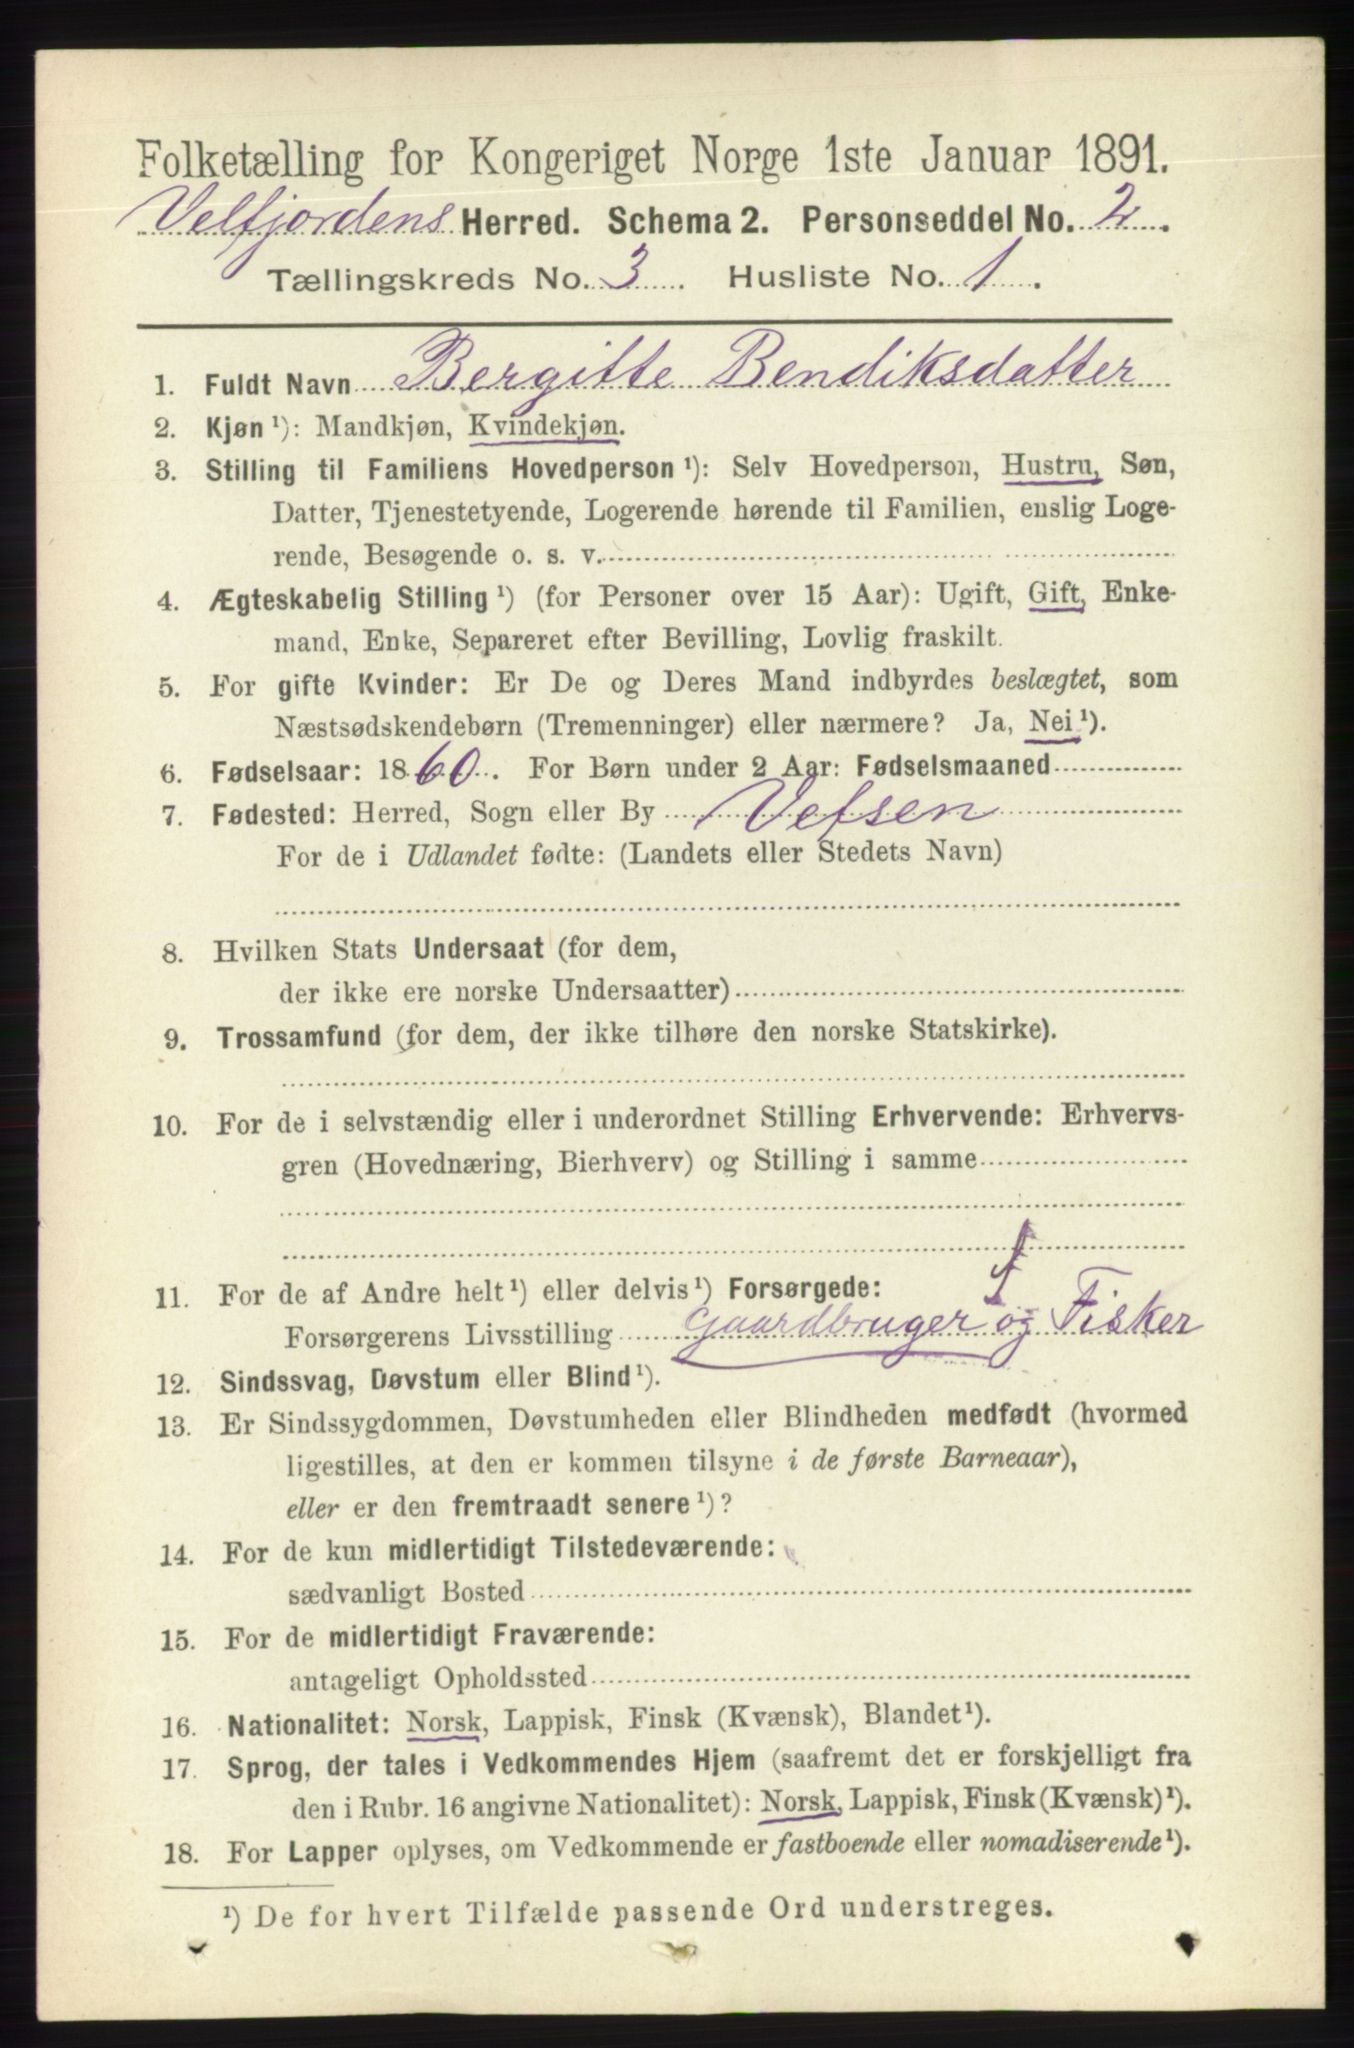 Folketælling for Kongeriget Norge 1ste Januar 1891.
Velfjordens Herred. Schema 2. Personseddel No. 2.
Tællingskreds No. 3. Husliste No. 1.
1. Fuldt Navn Bergitte Bendiksdatter
2. Kjøn ¹): Mandkjøn, Kvindekjøn.
3. Stilling til Familiens Hovedperson ¹): Selv Hovedperson, Hustru, Søn,
Datter, Tjenestetyende, Logerende hørende til Familien, enslig Loge-
rende, Besøgende o. s. v.
4. Ægteskabelig Stilling ¹) (for Personer over 15 Aar): Ugift, Gift, Enke-
mand, Enke, Separeret efter Bevilling, Lovlig fraskilt.
5. For gifte Kvinder: Er De og Deres Mand indbyrdes beslægtet, som
Næstsødskendebørn (Tremenninger) eller nærmere? Ja, Nei ¹).
6. Fødselsaar: 1860. For Børn under 2 Aar: Fødselsmaaned
7. Fødested: Herred, Sogn eller By Vefsen
For de i Udlandet fødte: (Landets eller Stedets Navn)
8. Hvilken Stats Undersaat (for dem,
der ikke ere norske Undersaatter)
9. Trossamfund (for dem, der ikke tilhøre den norske Statskirke).
10. For de i selvstændig eller i underordnet Stilling Erhvervende: Erhvervs-
gren (Hovednæring, Bierhverv) og Stilling i samme
11. For de af Andre helt ¹) eller delvis ¹) Forsørgede:
Forsørgerens Livsstilling Gaardbruger og Fisker
12. Sindssvag, Døvstum eller Blind ¹).
13. Er Sindssygdommen, Døvstumheden eller Blindheden medfødt (hvormed
ligestilles, at den er kommen tilsyne i de første Barneaar),
eller er den fremtraadt senere ¹)?
14. For de kun midlertidigt Tilstedeværende:
sædvanligt Bosted
15. For de midlertidigt Fraværende:
antageligt Opholdssted
16. Nationalitet: Norsk, Lappisk, Finsk (Kvænsk), Blandet ¹).
17. Sprog, der tales i Vedkommendes Hjem (saafremt det er forskjelligt fra
den i Rubr. 16 angivne Nationalitet): Norsk, Lappisk, Finsk (Kvænsk) ¹).
18. For Lapper oplyses, om Vedkommende er fastboende eller nomadiserende ¹).
¹) De for hvert Tilfælde passende Ord understreges.